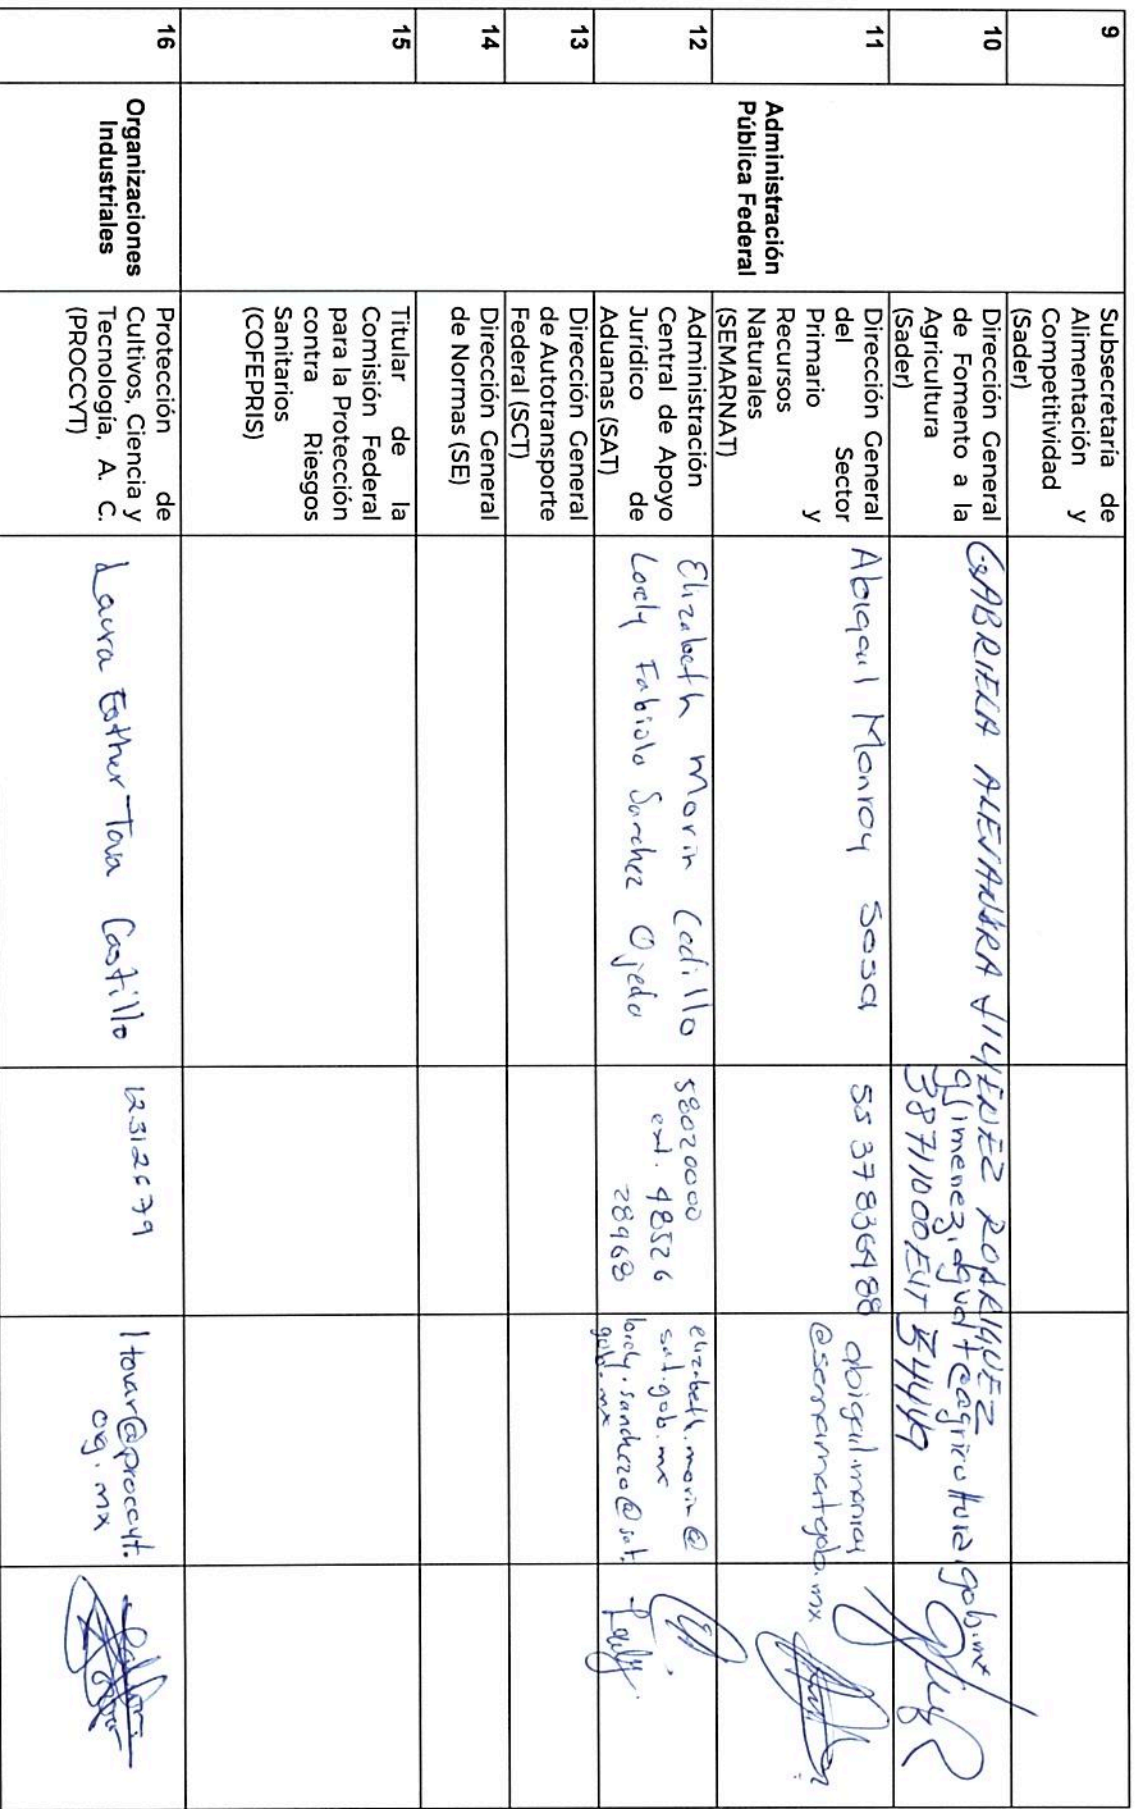 9
Subsecretaría de
Alimentación y
Competitividad
(Sader)
10
Dirección General
de Fomento a la
Agricultura
(Sader)
GABRIELA ALEJANDRA JIMENEZ RODRIGUEZ
gjimenez.dgvdt@agricultura.gob.mx
38711000 EXT
11
Administración
Pública Federal
Dirección General
del Sector
Primario y
Recursos
Naturales
(SEMARNAT)
Abigail Monroy Sosa
55 37836488
abigail.monroy
@semarnat.gob.mx
12
Administración
Central de Apoyo
Jurídico de
Aduanas (SAT)
Elizabeth Morin Cedillo
Lorely Fabiola Sanchez Ojeda
58020000
ext. 48526
28968
elizabeth.morin@
sat.gob.mx
lorely.sanchezo@sat.
gob.mx
13
Dirección General
de Autotransporte
Federal (SCT)
14
Dirección General
de Normas (SE)
15
Titular de la
Comisión Federal
para la Protección
contra Riesgos
Sanitarios
(COFEPRIS)
16
Organizaciones
Industriales
Protección de
Cultivos, Ciencia y
Tecnología, A. C.
(PROCCYT)
Laura Esther Tova Castillo
12312679
ltovar@proccyt.
org.mx